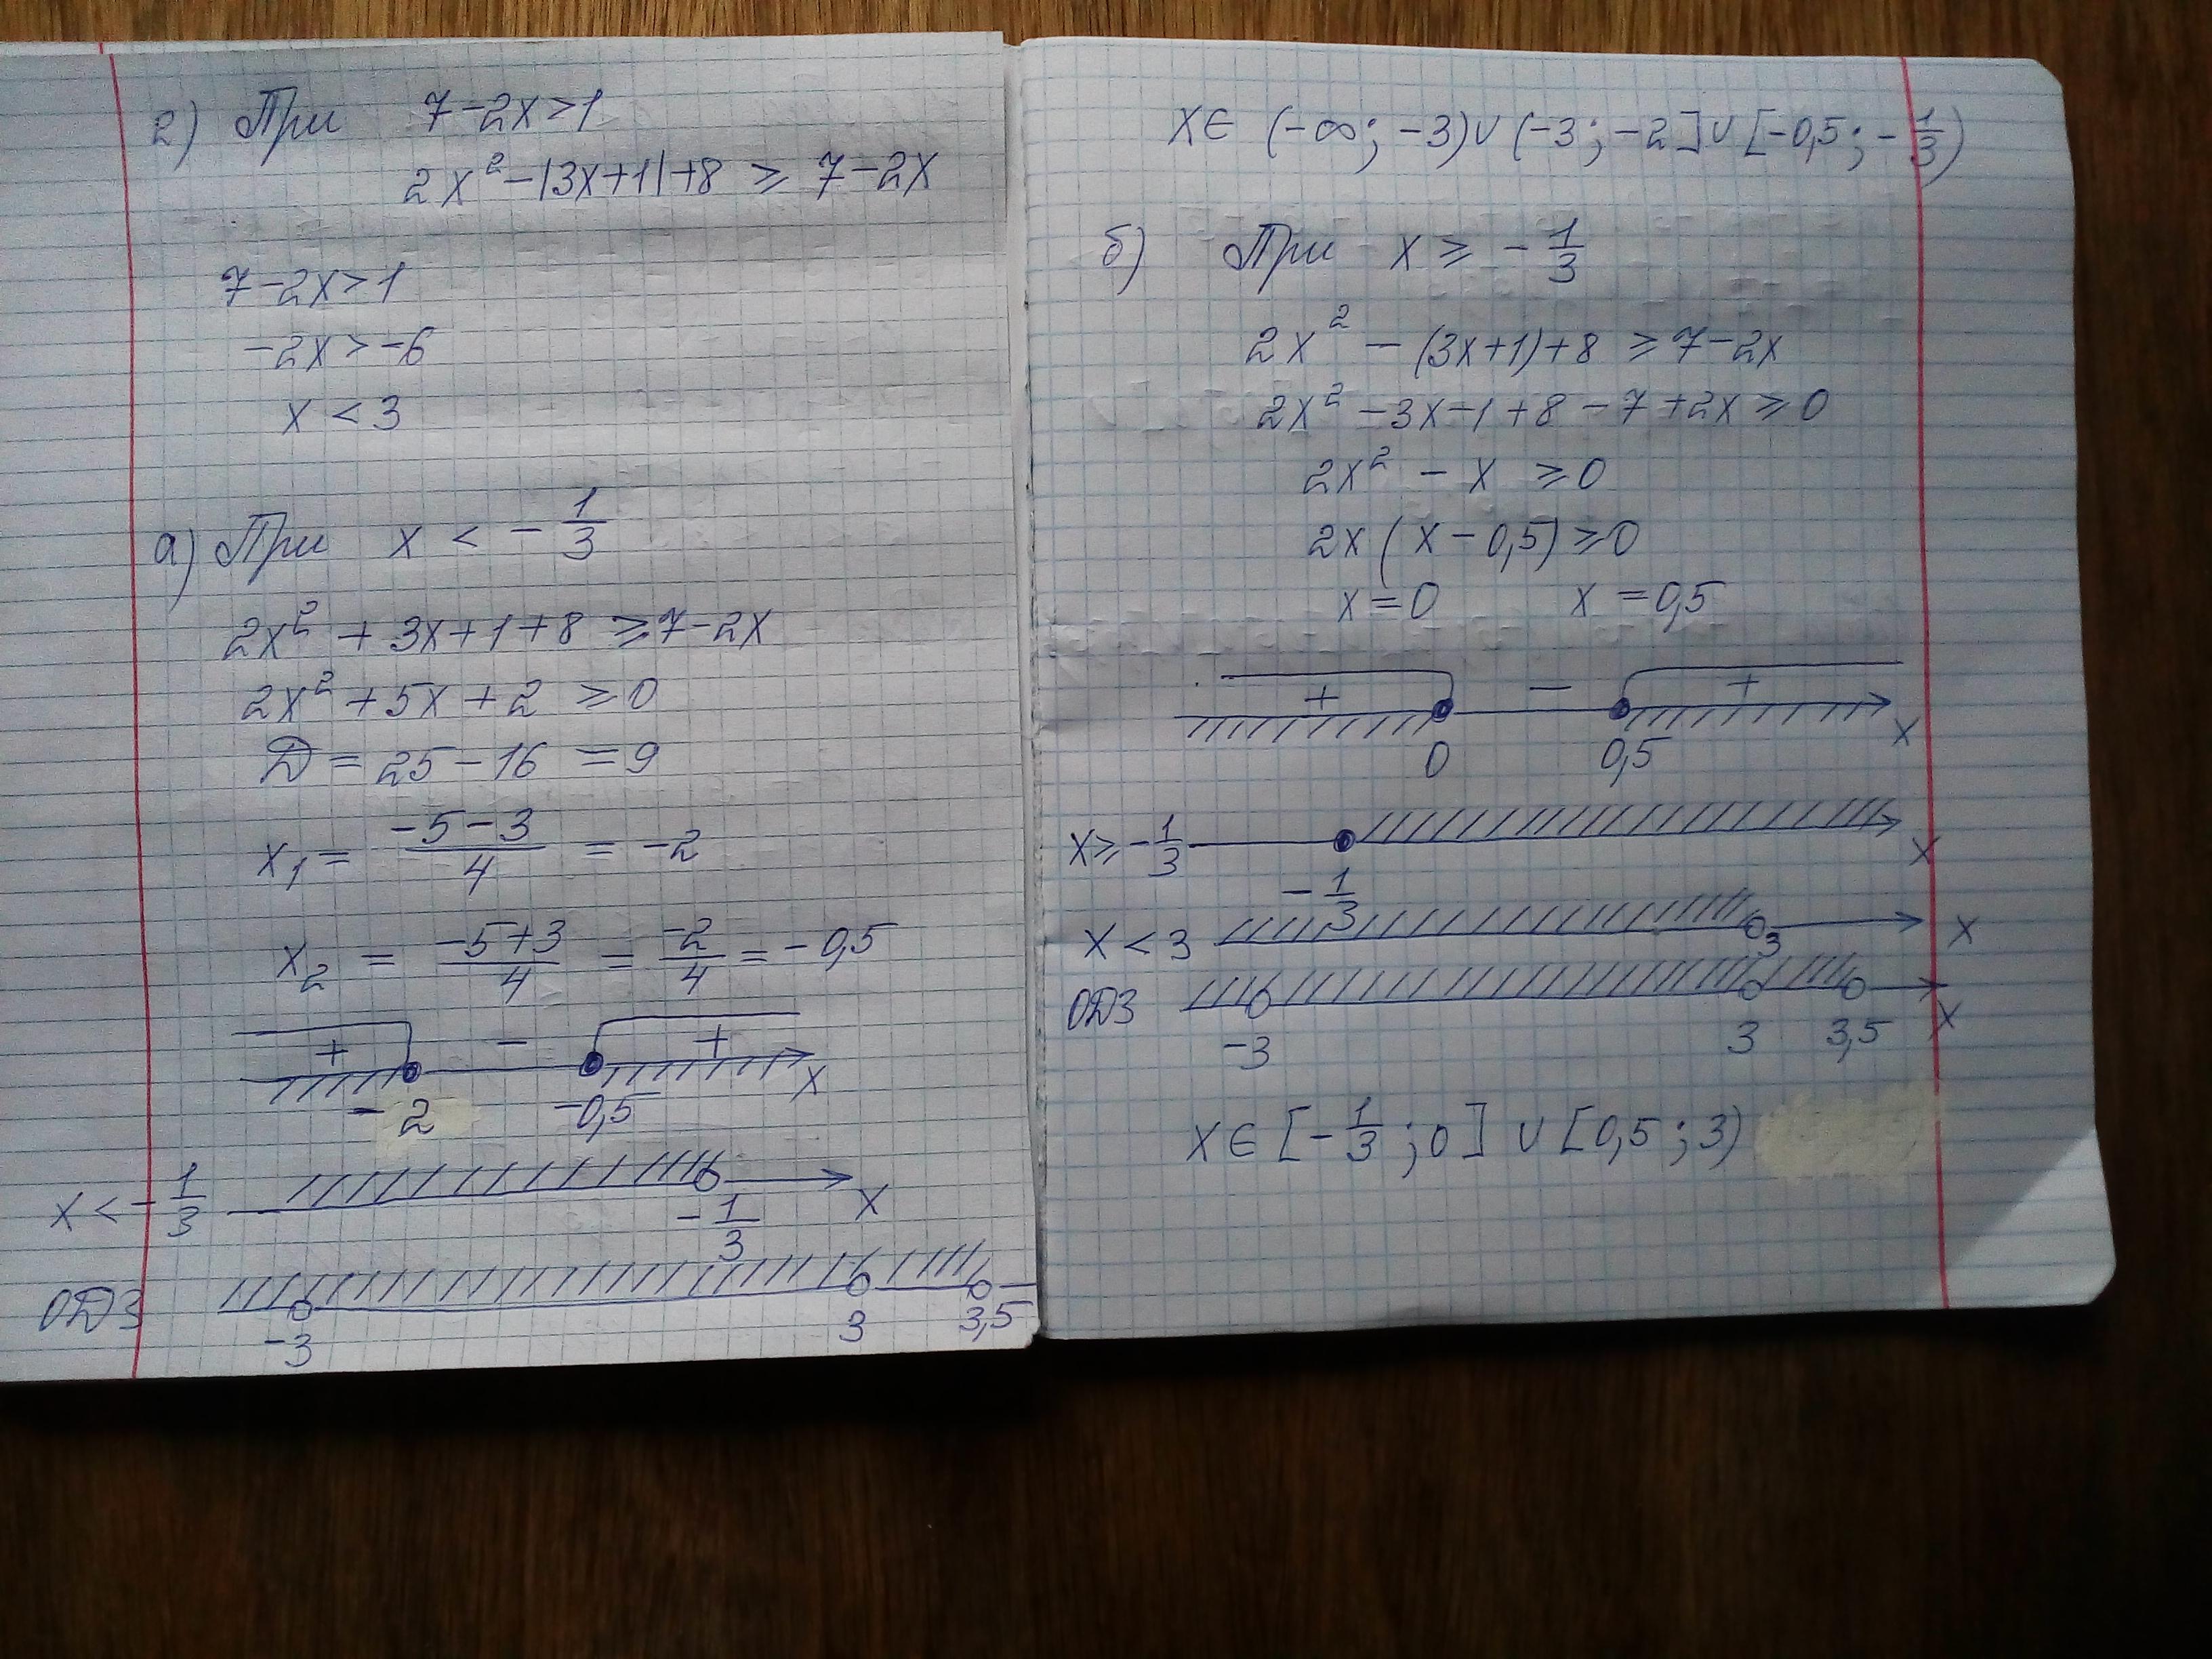 2) При 7-2x>1
2x²-|3x+1|+8 ⩾ 7-2x
7-2x>1
-2x>-6
x<3
а) При x < -1/3
2x²+3x+1+8 ⩾ 7-2x
2x²+5x+2 ⩾ 0
D = 25-16 = 9
x₁ = (-5-3)/4 = -2
x₂ = (-5+3)/4 = -2/4 = -0,5
+ - +
-2 -0,5 x
x < -1/3
-1/3 x
ОДЗ
-3 3 3,5
x∈ (-∞; -3)∪(-3; -2]∪[-0,5; -1/3)
б) При x ⩾ -1/3
2x² - (3x+1)+8 ⩾ 7-2x
2x²-3x-1+8-7+2x ⩾ 0
2x² - x ⩾ 0
2x(x-0,5) ⩾ 0
x=0 x=0,5
+ - +
0 0,5 x
x ⩾ -1/3 x
-1/3
x < 3 3 x
ОДЗ x
-3 3 3,5
x∈[-1/3; 0] ∪ [0,5; 3)